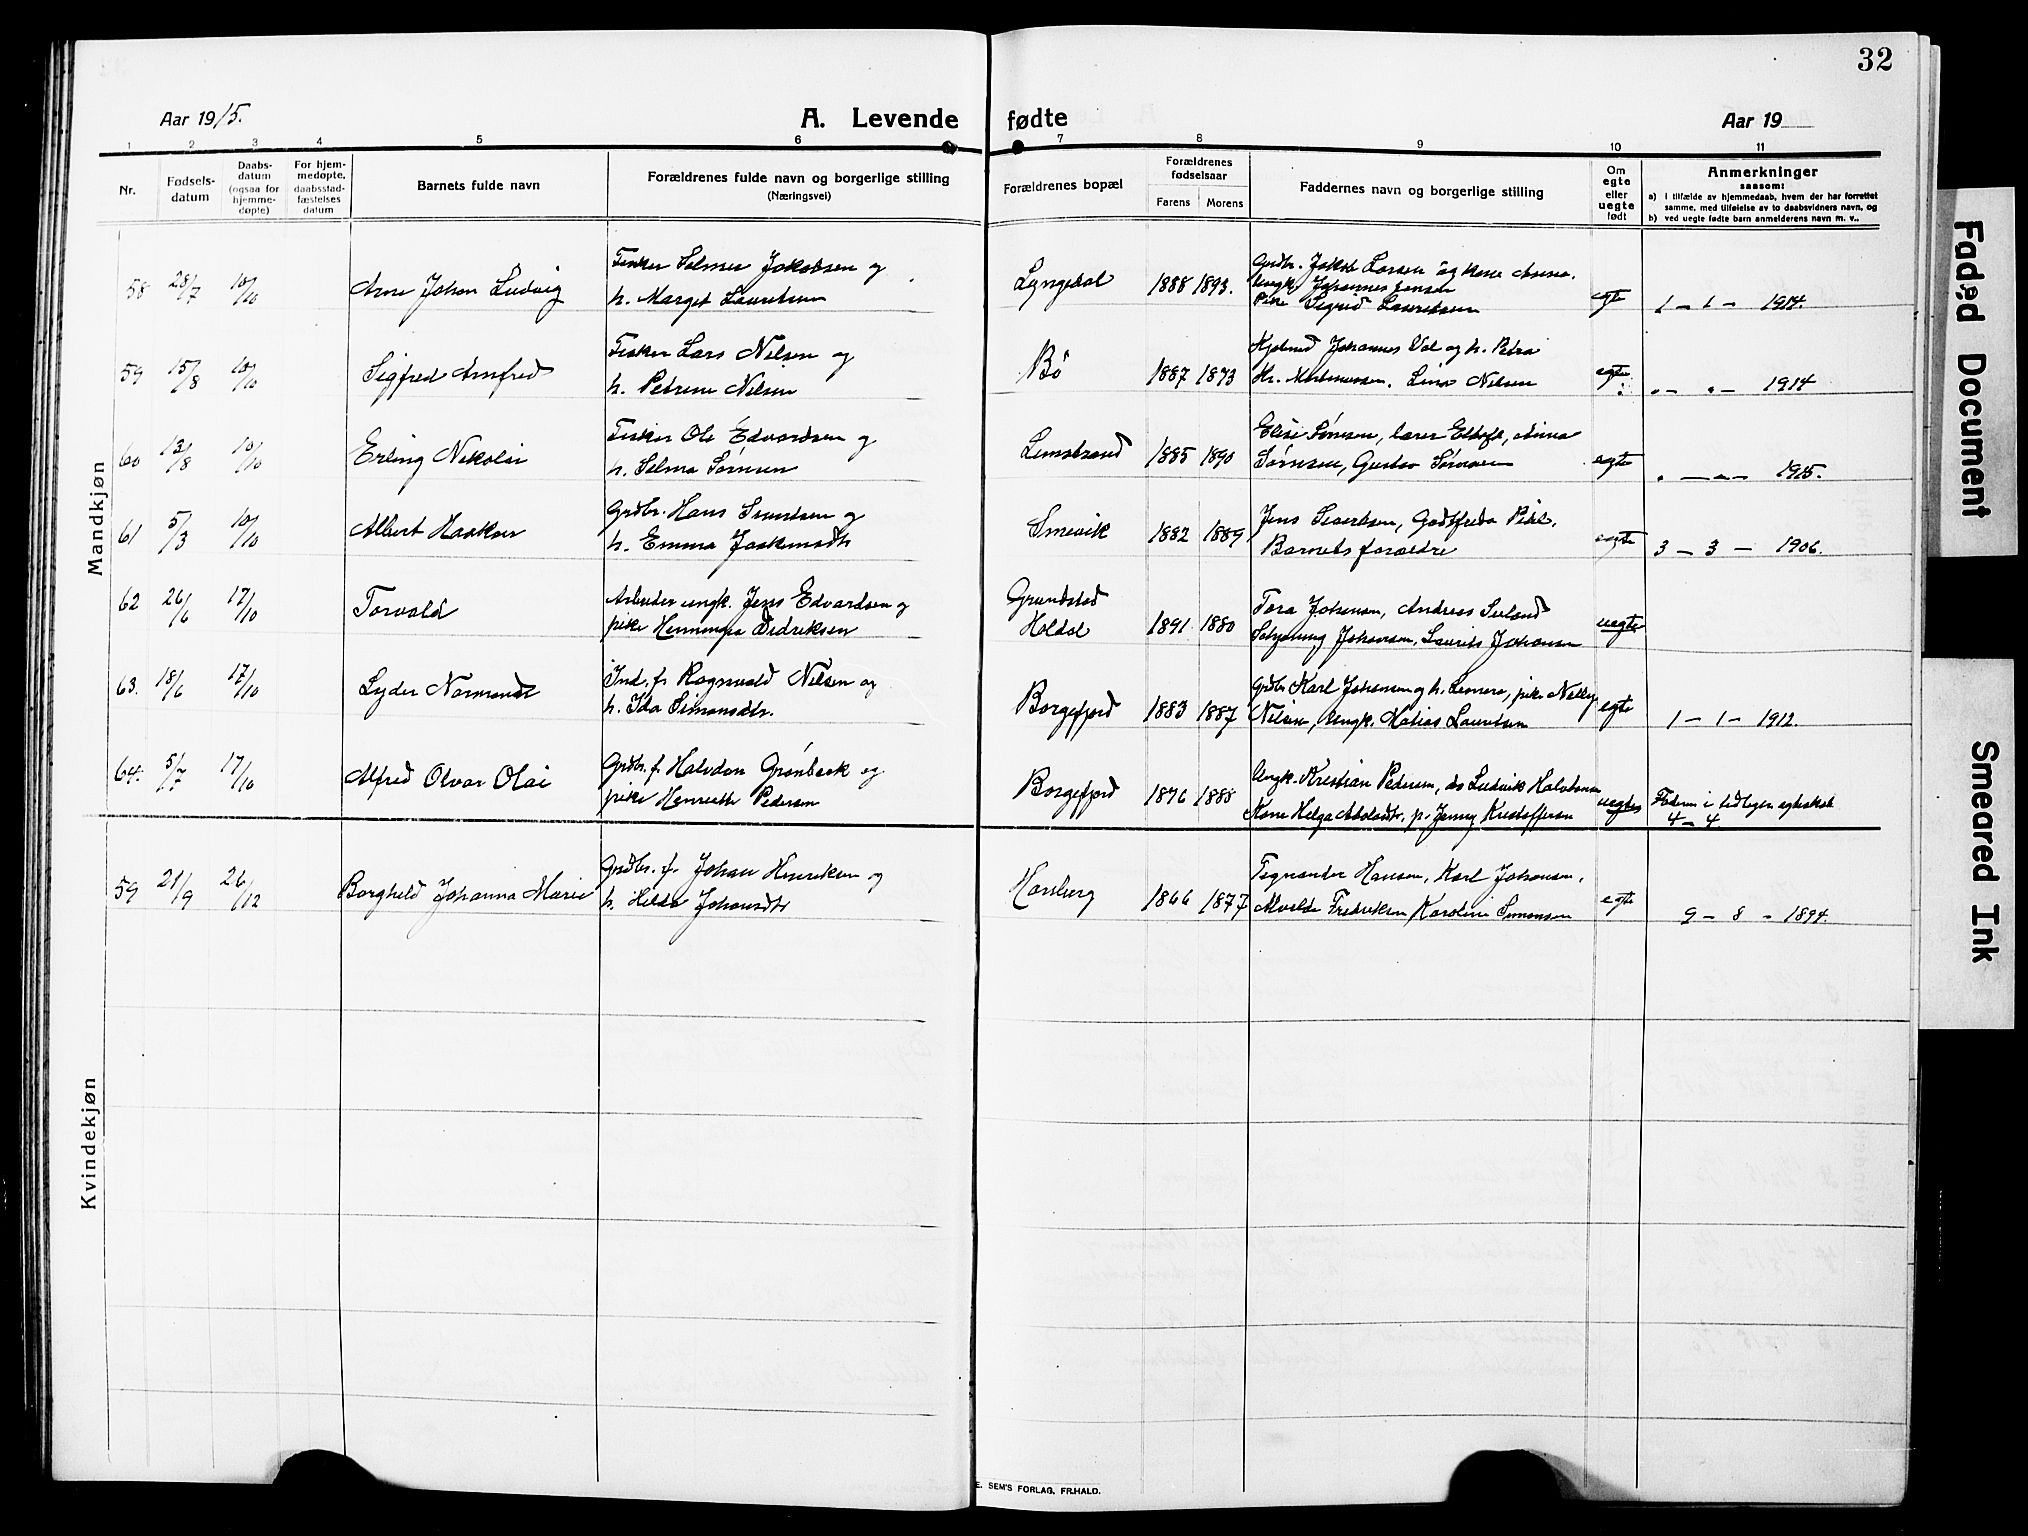 32
Aar 1915.
A. Levende fødte
Aar 19
1 2 3 4 5 6 7 8 9 10 11
Nr.
Fødsels-
datum
Daabs-
datum
(ogsaa for
hjemme-
døpte)
For hjem-
medøpte,
daabsstad-
fæstelses
datum
Barnets fulde navn
Forældrenes fulde navn og borgerlige stilling
(Næringsvei)
Forældrenes bopæl
Forældrenes
fødselsaar
Farens Morens
Faddernes navn og borgerlige stilling
Om
egte
eller
uegte
født
Anmerkninger
saasom:
a) I tilfælde av hjemmedaab, hvem der har forrettet
samme, med tilføielse av to daabsvidners navn, og
b) ved uegte fødte barn anmelderens navn m. v..
Mandkjøn
58 28/7 10/10 Arne Johan Ludvig
Fisker Selmer Jakobsen og
h. Marget Lauritsen
Lyngedal 1888 1893.
Grdbr. Jakob Larsen og kone Anna.
Ungk. Johannes Jensen
Pike Sigrid Lauritsen
egte 1 - 1 - 1914.
59 15/8 10/10 Sigfred Arnfred
Fisker Lars Nilsen og
h. Petrine Nilsen
Bø 1887 1873
Johannes Vol og h. Petra
Kr. Martinussen. Lina Nilsen
egte " - " - 1914
60 13/8 10/10 Erling Nikolai
Fisker Ole Edvardsen og
h. Selma Sørnsen
Limstrand 1885 1890
Elise Sørnsen, lærer Eltoft, Anna
Sørnsen, Gustav Sørnsen
egte " - " - 1915.
61 5/3 10/10 Albert Haakon
Grdbr. Hans Sivertsen og
h. Emma Joakimsdtr
Smevik 1882 1889
Jens Sivertsen, Godtfreda
Barnets forældre
egte 3 - 3 - 1906.
62 26/6 17/10 Torvald
Arbeider ungk. Jens Edvardsen og
pike Henninga Didriksen
Grundstad
Holdal 1891 1880
Tora Johansen, Andreas
Johansen, Laurits Johansen
uegte
63. 18/6 17/10 Lyder Normandt
Ind. f. Ragnvald Nilsen og
h. Ida Simonsdtr.
Borgefjord 1883 1887
Grdbr Karl Johansen og h. Leonora, pike Nelly
Nilsen, Ungk. Matias Lauritsen
egte 1 - 1 - 1912.
64. 5/7 17/10 Alfred Olvar Olai
Grdbr. f. Halvdan Grønbæk og
pike Henriette Pedersen
Borgefjord 1876 1888
Ungk. Kristian Pedersen, do Ludvik Halvdansen
Kone Helga p. Jenny Kristoffersen
uegte Faderen i tidligere egteskab
4 - 4.
Kvindekjøn
59 21/9 26/12 Borghild Johanna Marie
Grdbr. f. Johan Henriksen og
h. Hilda Johansdtr
Hansberg 1866 1877
Tegnander Hansen, Karl Johansen,
Alvilde Fredriksen Karoline Simonsen
egte 9 - 8 - 1894.
E. SEM'S FORLAG, FR.HALD.
Faded Document
Smeared Ink